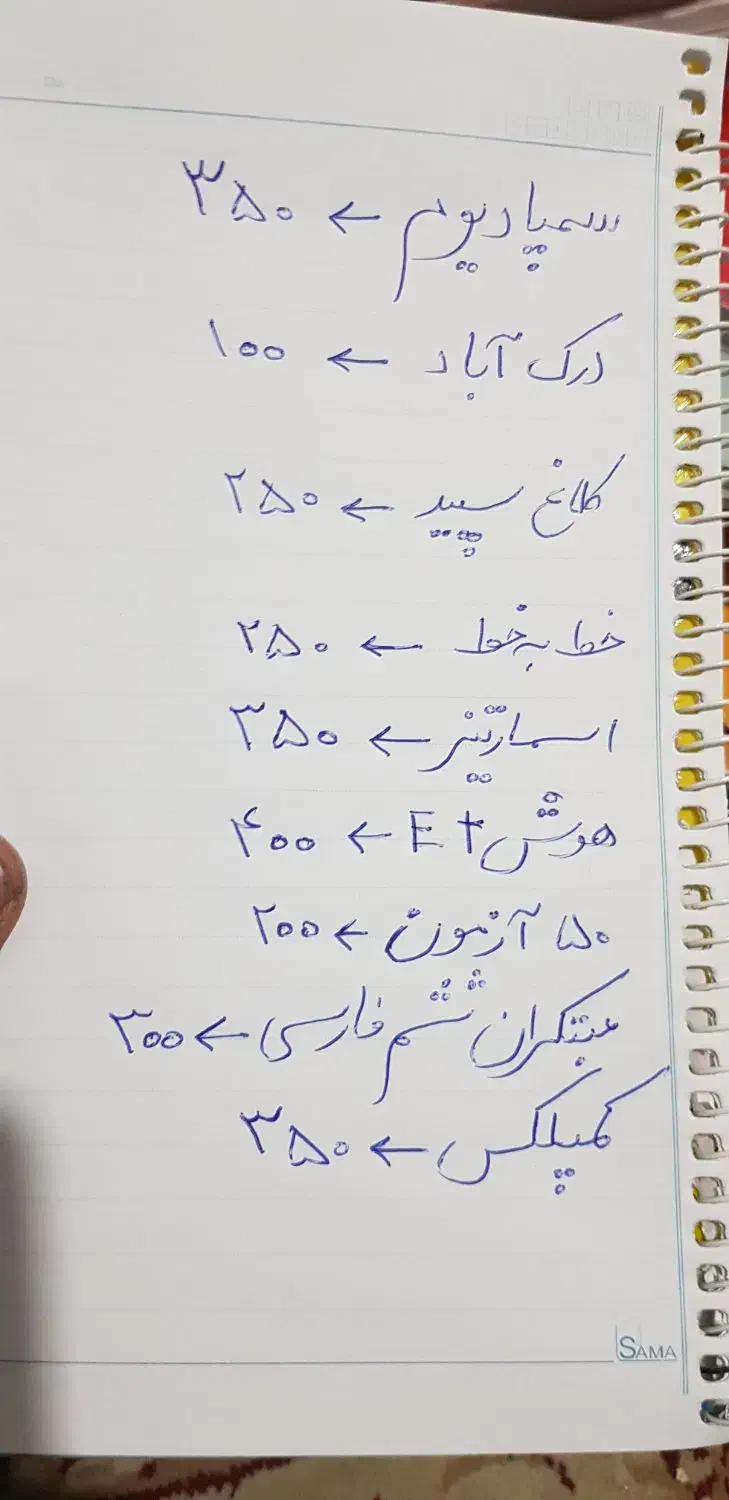 سمپادیوم ← ۳۵۰
درک آباد ← ۱۰۰
کلاغ سپید ← ۲۵۰
خط به خط ← ۲۵۰
اسمارتیز ← ۳۵۰
هوش E+ ← ۴۰۰
۵۰ آزمون ← ۲۰۰
مبتکران ششم فارسی ← ۳۰۰
کمپلکس ← ۳۵۰
SAMA